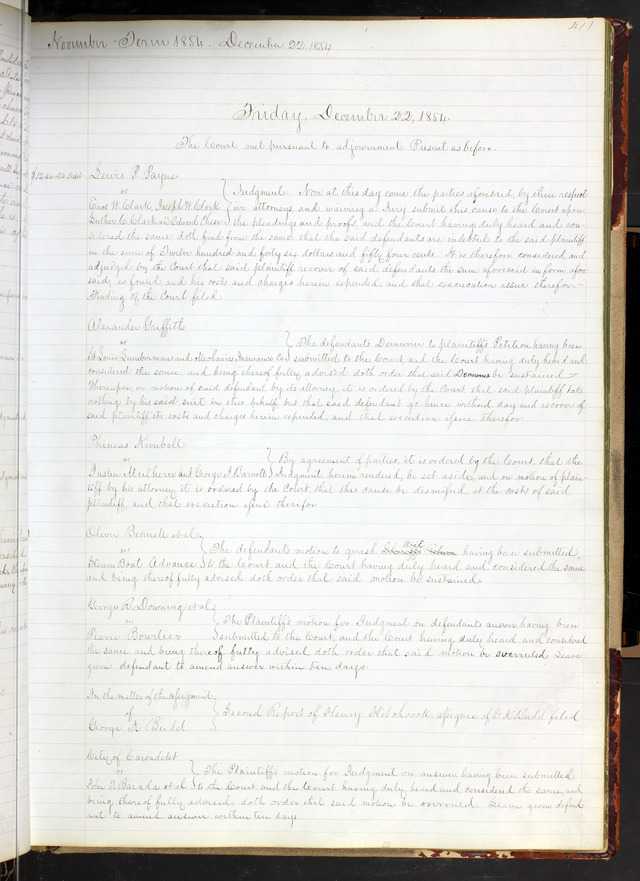 411
November Term 1854. December 22, 1854
Friday, December 22, 1854.
The Court met pursuant to adjournment. Present as before.
Lewis P. Payne
vs
Enos W. Clark, Joseph W. Clark
Luther C. Clark and Edward
Judgment. Now at this day come the parties aforesaid by their respect
ive attorneys and waiving a Jury submit this cause to the Court upon
the pleadings and proofs, and the Court having duly heard and con-
sidered the same doth find from the same that the said defendants are indebted to the said plaintiff
in the sum of Twelve hundred and forty six dollars and fifty four cents. It is therefore considered and
adjudged by the Court that said plaintiff recover of said defendants the sum aforesaid in form afore
said, so found, and his costs and charges herein expended and that execution issue therefor.
Finding of the Court filed.
Alexander Griffith
vs
St Louis Lumbermans and Mechanics Insurance Co
The defendants Demurrer to plaintiffs Petition having been
submitted to the Court and the Court having duly heard and
considered the same and being thereof fully advised doth order that said Demurrer be sustained
Whereupon, on motion of said defendant by its attorney, it is ordered by the Court that said plaintiff take
nothing by his said suit in this behalf but that said defendant go hence without day and recover of
said plaintiff its costs and charges herein expended, and that execution issue therefor
Phineas Kimball
vs
Austin Mulhern and George A. Barnett
By agreement of parties, it is ordered by the Court, that the
Judgment herein rendered, be set aside, and on motion of plain-
tiff by his attorney, it is ordered by the Court, that this cause be dismissed, at the costs of said
plaintiff, and that execution issue therefor
Oliver Bennett et al
vs
Steam Boat Advance
The defendants motion to quash Sheriffs Return Writ having been submitted
to the Court, and the Court having duly heard and considered the same
and being thereof fully advised doth order that said motion be sustained
George R. Downing et al
vs
Pierre
The Plaintiffs motion for Judgment on defendants answer having been
submitted to the Court, and the Court having duly heard and considered
the same, and being thereof fully advised, doth order that said motion be overruled. Leave
given defendant to amend answer within ten days.
In the matter of the assignment
of
George K. Budd
Second Report of Henry Hitchcock, assignee of G. K. Budd filed
City of Carondolet
vs
John A. Barada et al
The Plaintiffs motion for Judgment on answer having been submitted
to the Court and the Court having duly heard and considered the same, and
being thereof fully advised, doth order that said motion be overruled. Leave given defend
ant to amend answer within ten days